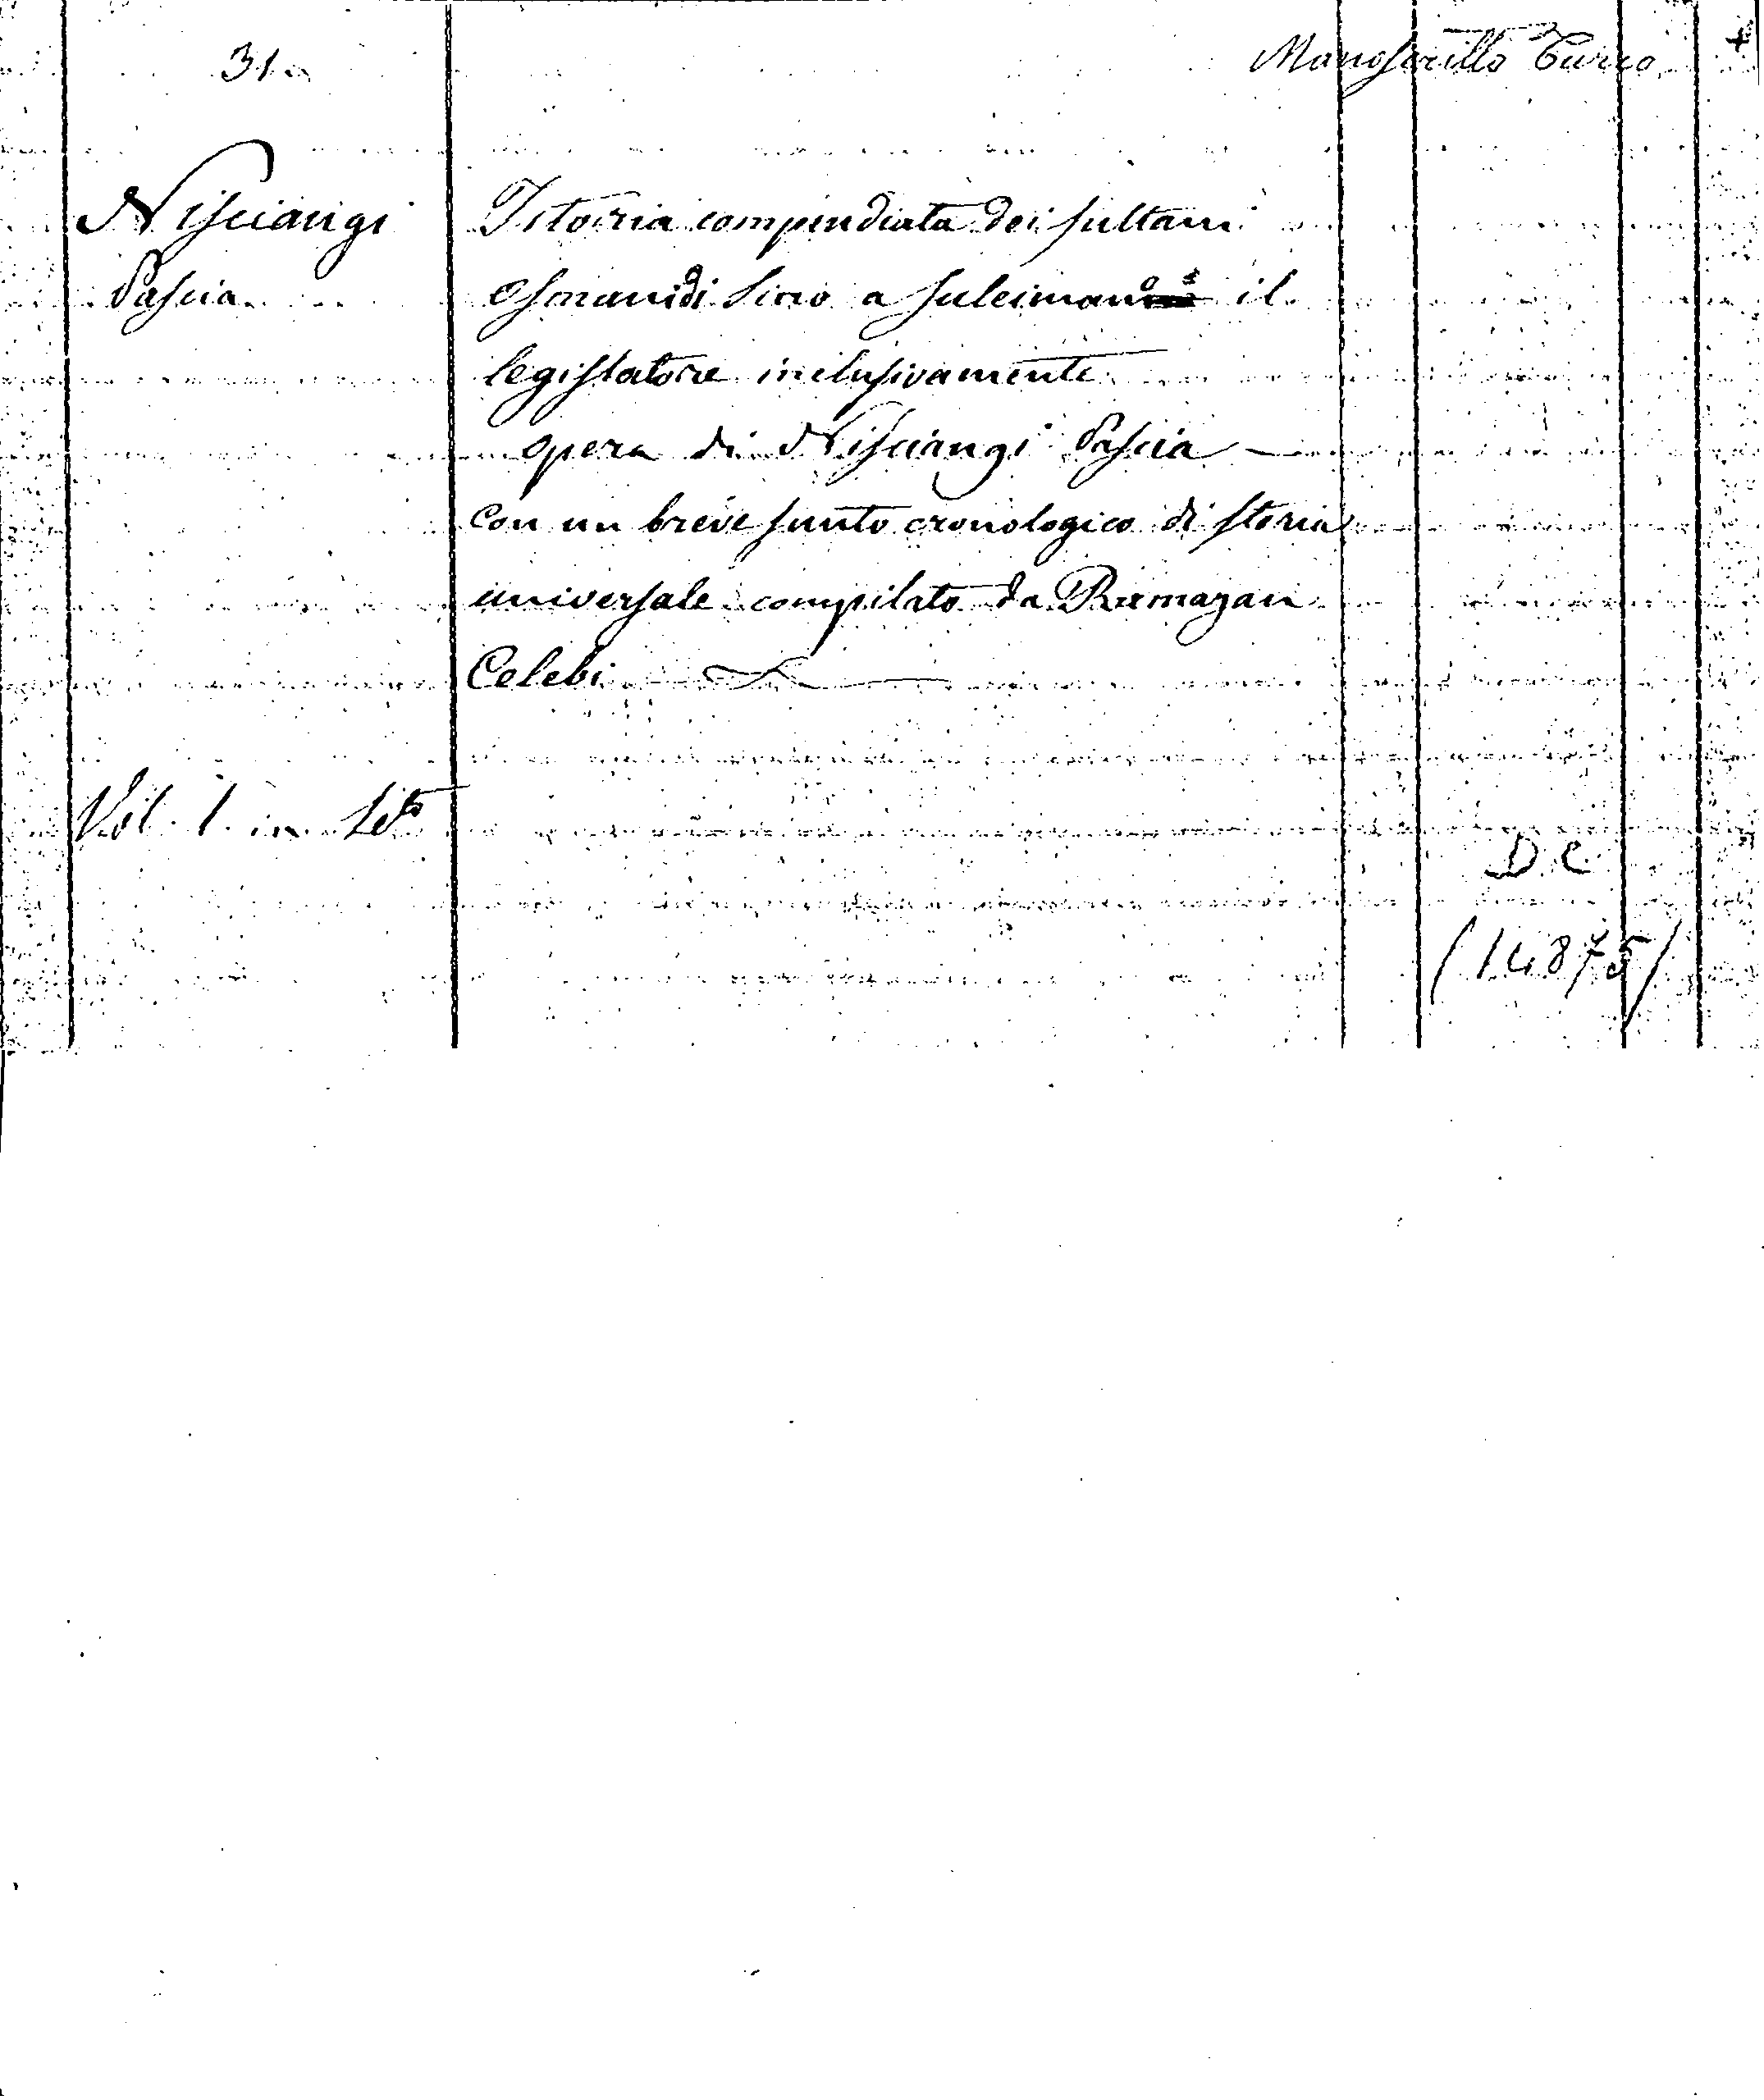 31.
Manoscritto Turco
Nisciangi
Pascia
Istoria compendiata dei sultani
Osmanidi sino a Suleimano il
legislatore inclusivamente
opera di Nisciangi Pascia —
con un breve sunto cronologico di storia
universale compilato da Ramazan
Celebi
Vol. 1. in
D. C.
(14875)